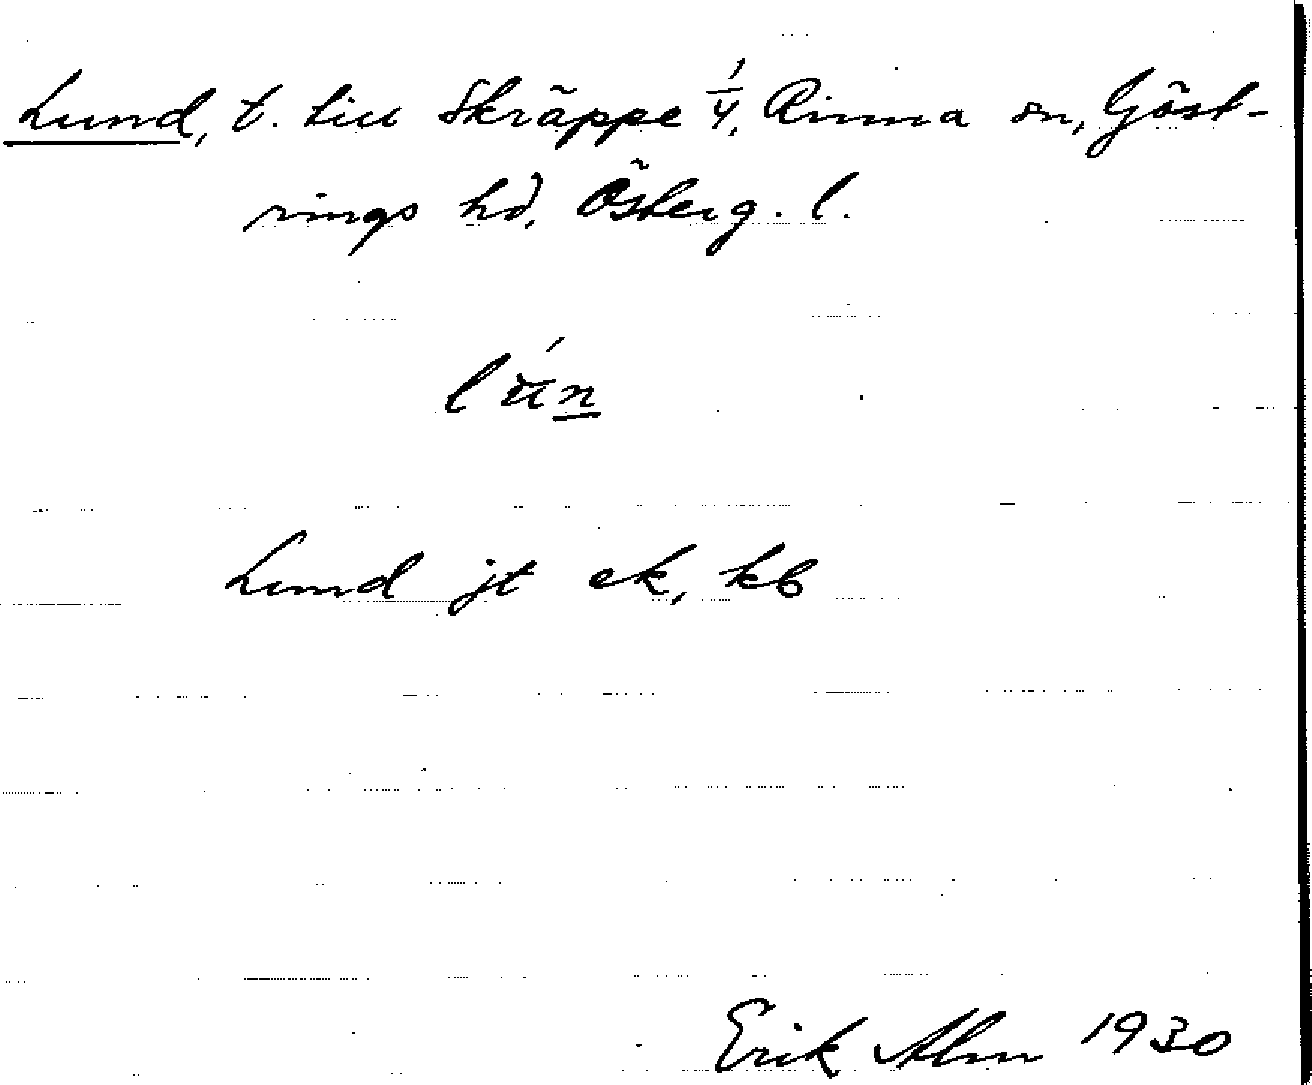 Lund, t. till Skräppe 1/4, Rinna sn, Göst-
rings hd, Österg. l.
Lund jt ek, kb
Erik Alm 1930